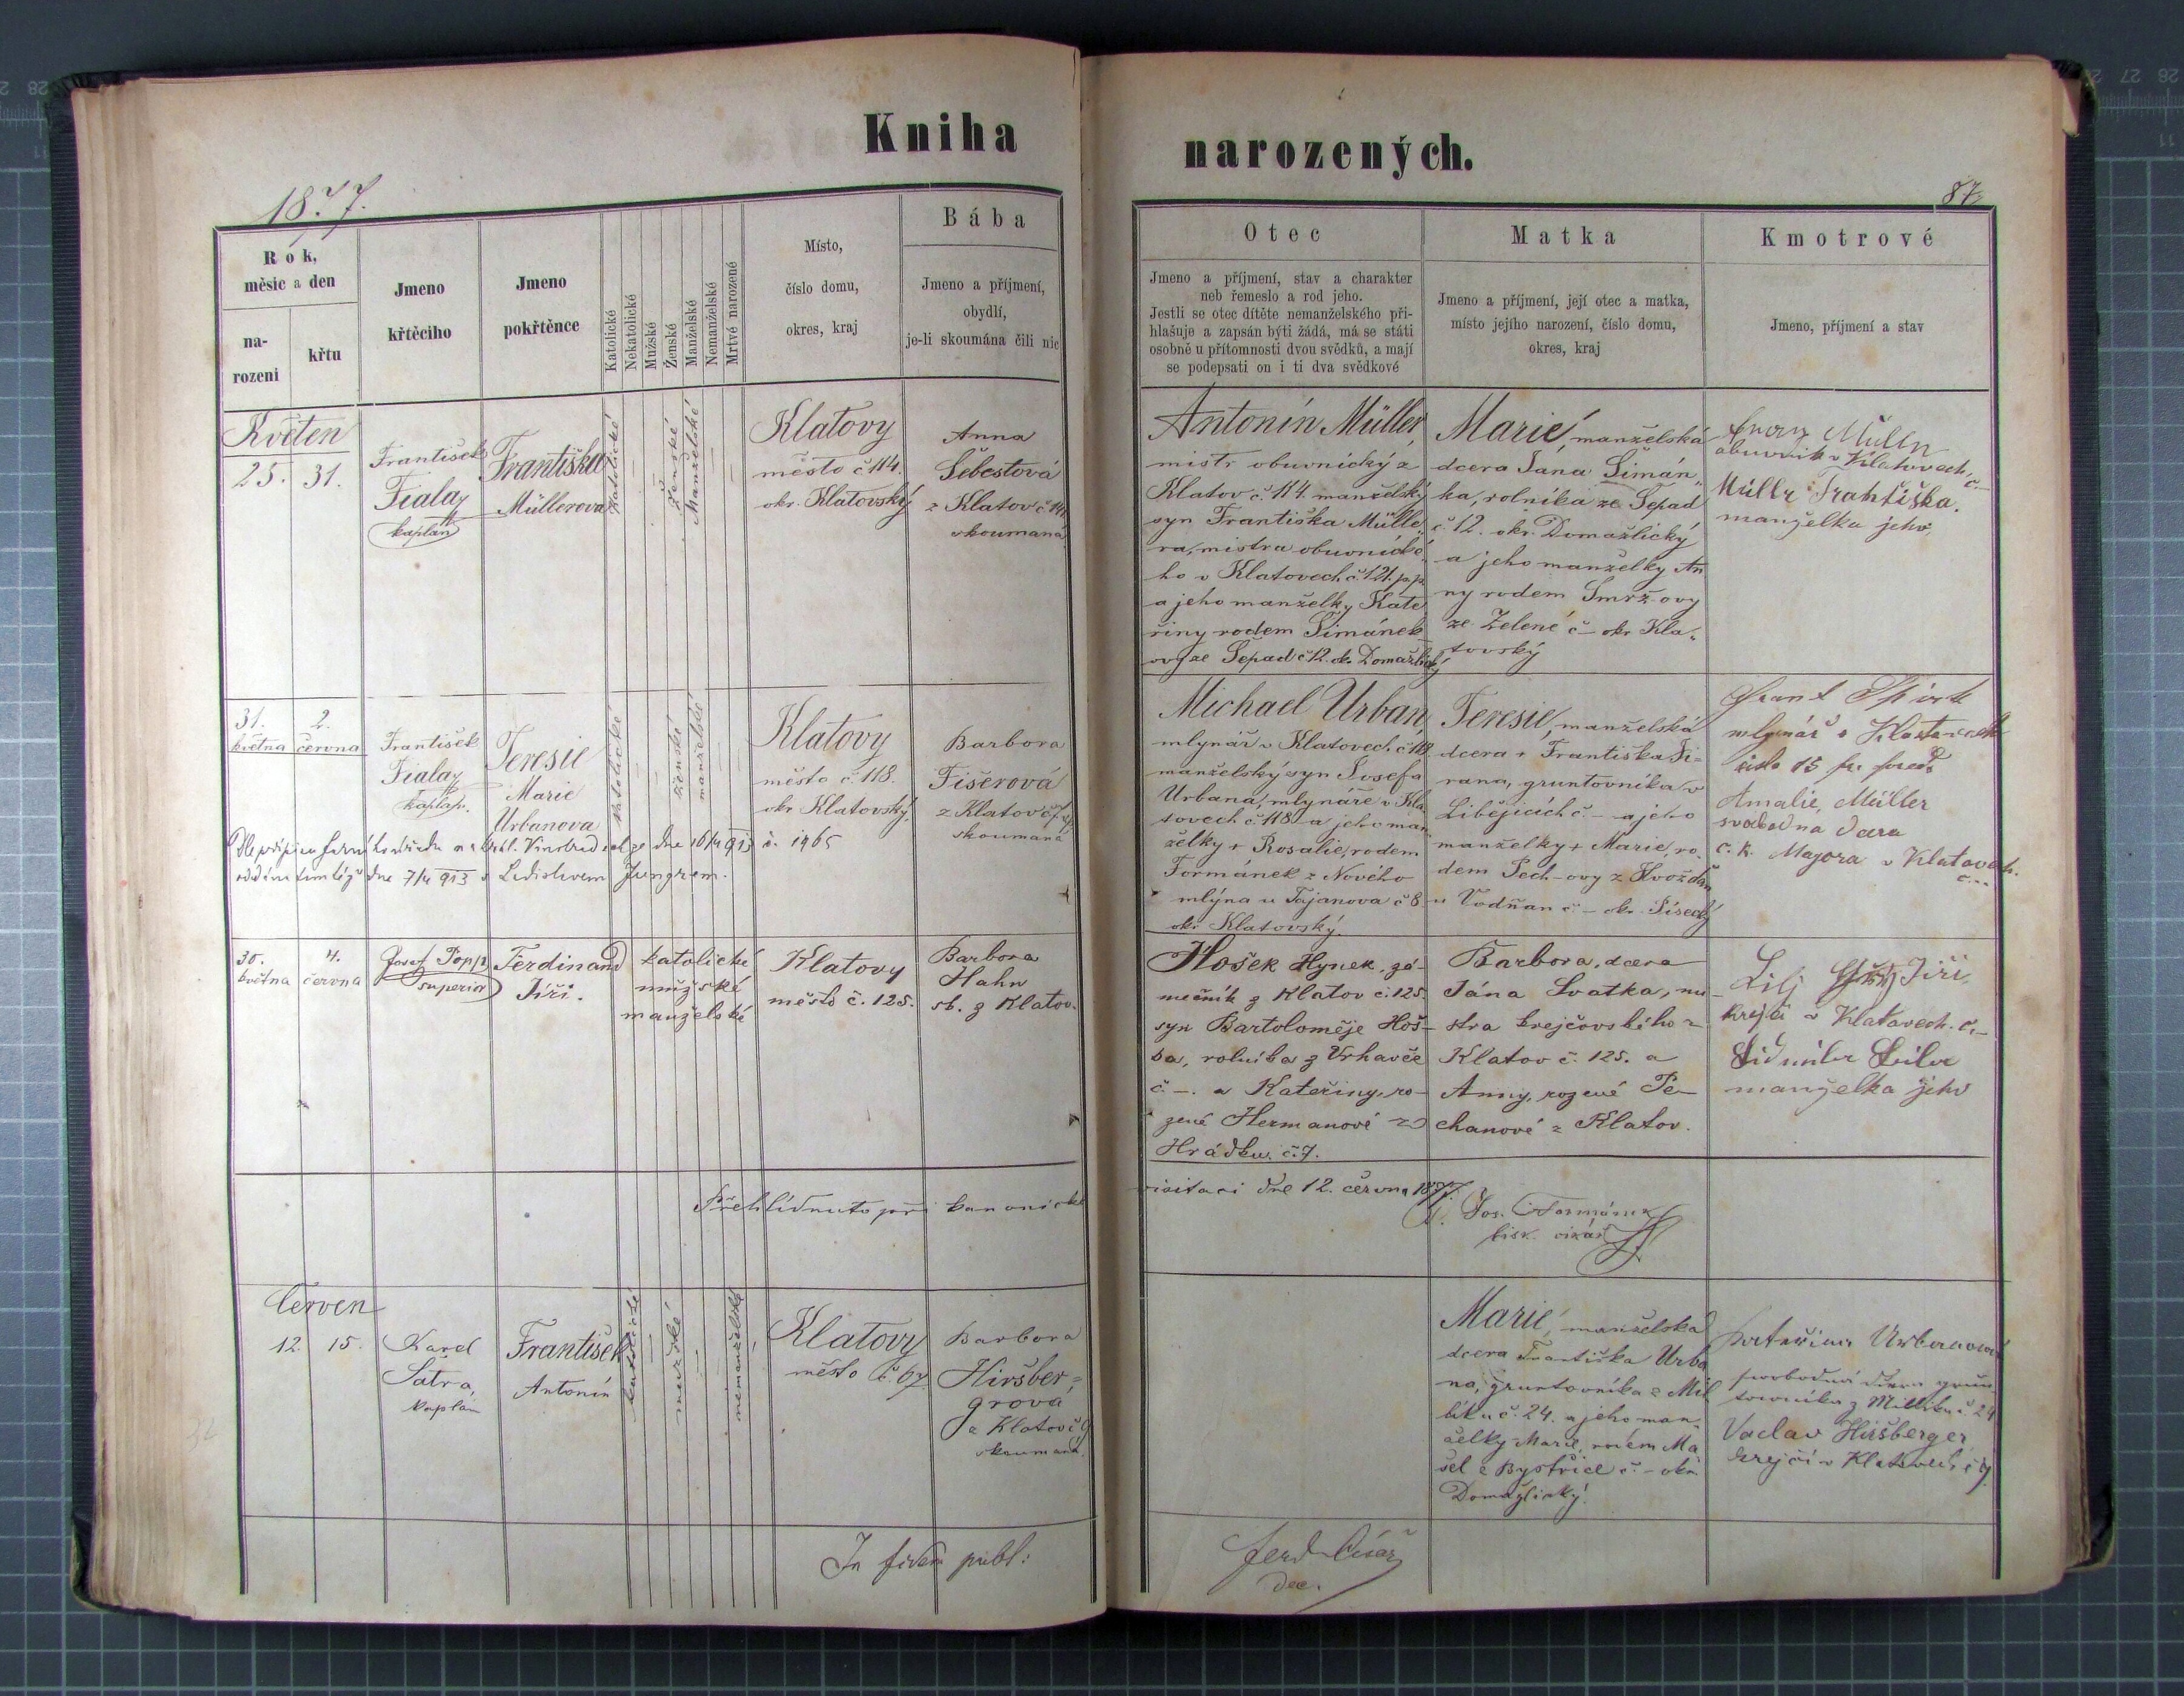 Kniha
narozených.
1877.
87.
Rok,
měsíc a den
na-
rozeni
křtu
Jmeno
křtěcího
Jmeno
pokřtěnce
Katolické
Nekatolické
Mužské
Ženské
Manželské
Nemanželské
Mrtvé narozené
Místo,
číslo domu,
okres, kraj
Bába
Jmeno a příjmení,
obydlí,
je-li skoumána čili nic
Otec
Jmeno a příjmení, stav a charakter
neb řemeslo a rod jeho.
Jestli se otec dítěte nemanželského při-
hlašuje a zapsán býti žádá, má se státi
osobně u přítomnosti dvou svědků, a mají
se podepsati on i ti dva svědkové
Matka
Jmeno a příjmení, její otec a matka,
místo jejího narození, číslo domu,
okres, kraj
Kmotrové
Jmeno, příjmení a stav
Květen
25. 31.
František
Fiala
kaplan
Františka
Müllerova
Katolické
ženské
Manželské
Klatovy
město č 114.
okr. Klatovský
Anna
Šebestová
z Klatov č 141
skoumaná
Antonín Müller,
mistr obuvnický z
Klatov č. 114. manželský
syn Františka Mülle-
ra, mistra obuvnické-
ho v Klatovech č. 121. p.p
a jeho manželky Kate
řiny rodem Šimánek
ovy ze Sepad č 12. okr. Domažlický
Marie, manželská
dcera Jana Šimán„
ka, rolníka ze Sepad
č. 12. okr. Domažlický,
a jeho manželky An
ny rodem Smrž-ovy
ze Zelené č – okr. Kla„
tovský
Franz Mülln
obuvník v Klatovech. č–
Müllr Frahtiška.
manželka jeho
31. 2.
května června
František
Fiala
kaplan.
Teresie
Marie
Urbanova
katolické
ženské
manželské
Klatovy
město č 118.
okr Klatovský.
Barbora
Fišerová
z Klatov
skoumaná
Michael Urban,
mlynář v Klatovech č 118
manželský syn Josefa
Urbana, mlynáře v Kla
tovech č. 118 a jeho man
želky + Rosalie, rodem
Formánek z Nového
mlýna u Tajanova č 8
okr Klatovský.
Teresie, manželská
dcera + Františka Ji-
rana, gruntovníka v
Libějicích č. – a jeho
manželky + Marie, ro.
dem Pech-ovy z Hvožďan
u Vodňan č. – okr. Písecký
mlynář v Klatovech
číslo 15
Amalie, Müller
svobodna dcera
c. k. Majora v Klatovech.
č...
ze dne 16/4 913 č. 1965
dne 7/4 913 s Ladislavem Jungrem.
30. 4.
května června
Josef Popp
superior
Ferdinand
Jiří.
katolické
mužské
manželské
Klatovy
město č. 125.
Barbora
Hahn
sb. z Klatov.
Hošek Hynek, zá-
mečník z Klatov č. 125.
syn Bartoloměje Hoš-
ka, rolníka z Vrhavče
č –. a Kateřiny, ro-
zené Hermanové z
Hrádku. č. 7.
Barbora, dcera
Jána Svatka, mi
stra krejčovského z
Klatov č. 125. a
Anny, rozené Pe-
chanové z Klatov.
Jiří,
krejčí v Klatovech. č.–
manželka jeho
Přehlídnuto při kanonické
visitaci dne 12. června 1877.
Jos. Formánek
bisk. vikář
Červen
12. 15.
Karel
Šatra,
kaplan
František
Antonín
katolické
mužské
nemanželské
Klatovy
město č. 67
Barbora
Hiršber-
grova
z Klatov č 9
skoumaná.
Marie, manželska
dcera Františka Urba
na, gruntovníka z Mil
líku č. 24. a jeho man-
želky Marie, rodem Ma
šel z Bystřice č. – okr.
Domažlický.
Kateřina Urbanová
svobodná dcera grun
tovníka z Millíku č. 24
Vaclav Hiršberger
krejčí v Klatovech č 9.
In fidem publ:
Ferd. Císař
dec.